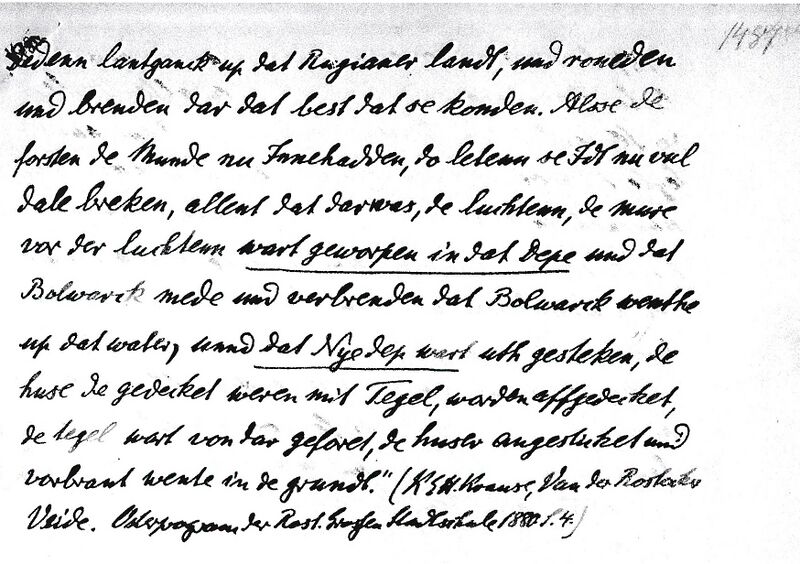 1487
deden lantganck up dat Rugianer landt, und roveden
und brenden dar dat best dat se konden. Alsse de
forsten de Munde nu Innehadden, do letenn se Idt nu vul
dale breken, allent dat dar was, de luchtenn, de mure
vor der luchtenn wart geworpen in dat Depe und dat
Bolwarck mede und verbrenden dat Bolwarck wenthe
up dat water, unnd dat Nyedep wart uth gesteken, de
huse de gedecket weren mit Tegel, worden affgedecket,
de tegel wart von dar geforet, de huser angesticket und
vorbrant wente in de grundt." (K.E.H. Krause, Van der Rostocker
Veide. Osterprogram der Rost. Großen Stadtschule 1880 S. 4.)